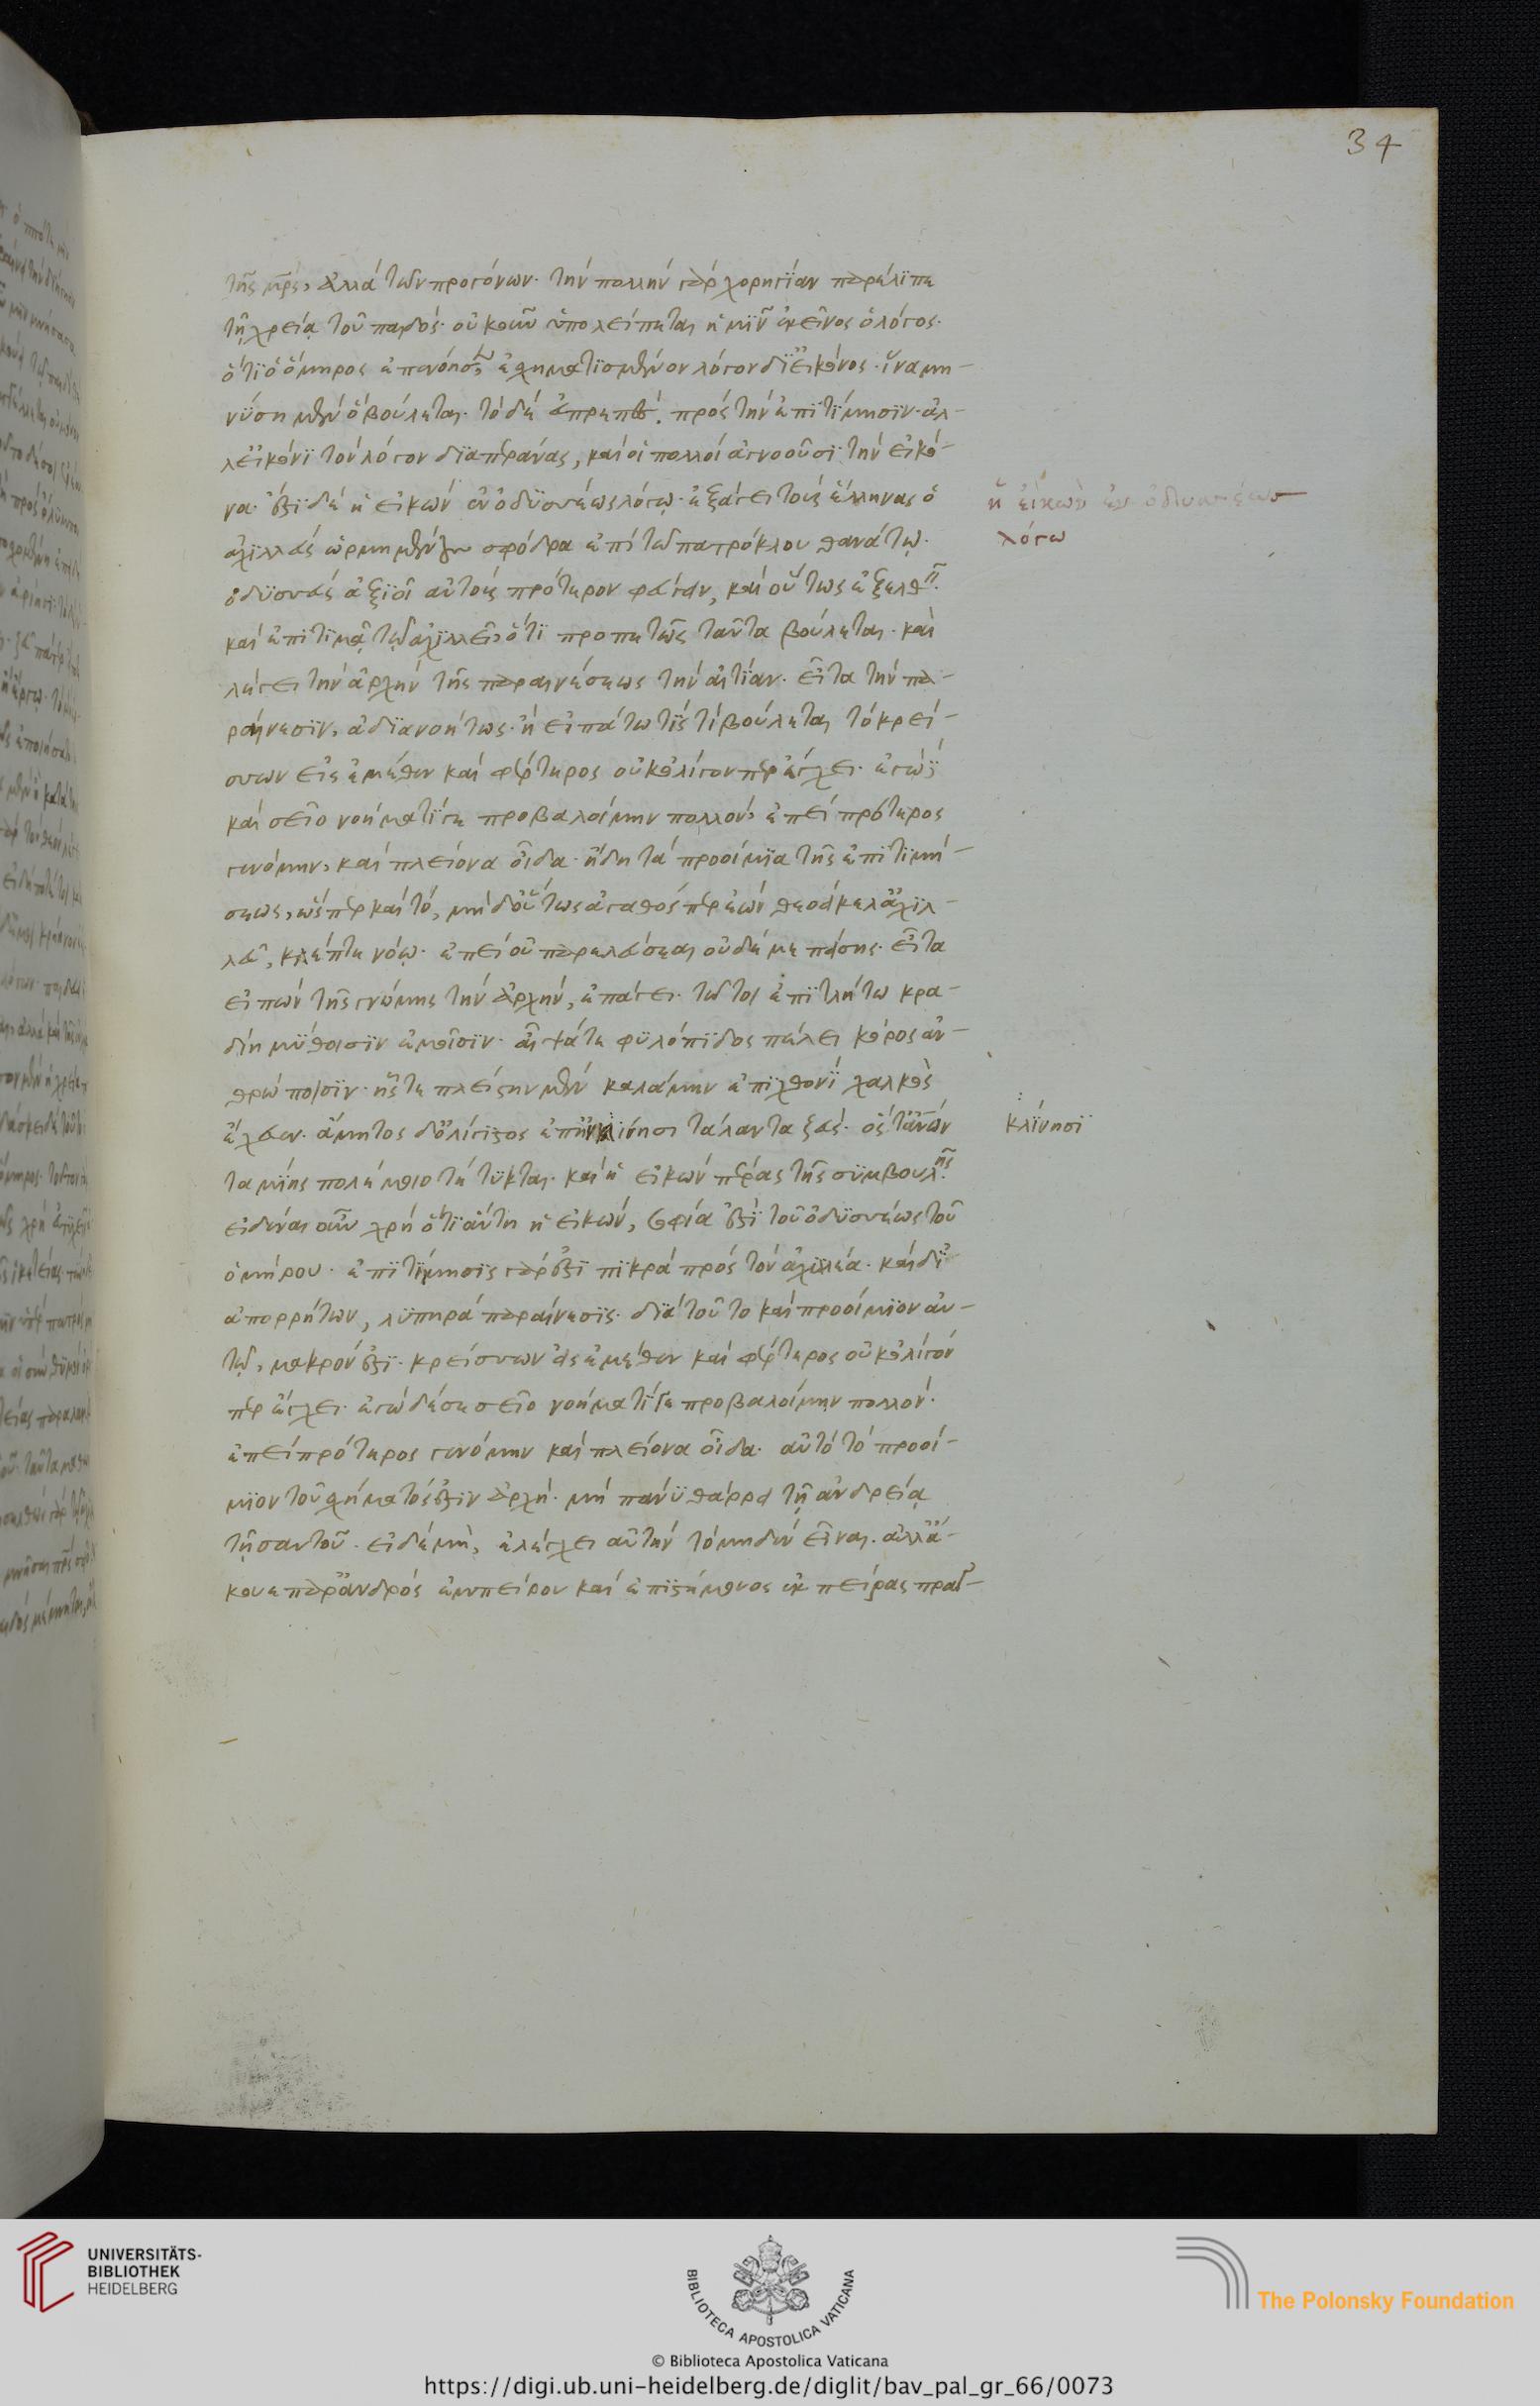 34
τῆς μρς, ἀλλὰ τῶν προγόνων· τὴν πολλὴν γὰρ χορηγίαν παρέλιπε
τῇ χρείᾳ τοῦ παρόντος· οὐκοῦν ὑπολείπεται ἡμῖν ἐκεῖνος ὁ λόγος·
ὅτι ὁ ὅμηρος ἐπενόησεν, ἐσχηματισμένον λόγον δι' εἰκόνος· ἵνα μη-
νύση μὲν ὃ βούλεται· τὸ δὲ ἀπρεπὲς πρὸς τὴν ἐπιτίμησιν· ἀλ-
λ' εἰκόνι τὸν λόγον διαπεράνας, καὶ οἱ πολλοὶ ἀγνοοῦσι τὴν εἰκό-
να· ἔστι δὲ ἡ εἰκὼν ἐν ὀδυσσέως λόγῳ· ἐξάγει τοὺς ἕλληνας ὁ
ἀχιλλεὺς ὡρμημένους σφόδρα ἐπὶ τῷ πατρόκλου θανάτῳ·
ὀδυσσεὺς ἀξιοῖ αὐτοὺς πρότερον φαγεῖν, καὶ οὕτως ἐξελθεῖν·
καὶ ἐπιτιμᾷ τῷ ἀχιλλεῖ, ὅτι προπετῶς ταῦτα βούλεται· καὶ
λέγει τὴν ἀρχὴν τῆς παραινέσεως τὴν αἰτίαν· εἶτα τὴν πα-
ραίνεσιν, ἀδιανοήτως· ἢ εἰπάτω τίς τί βούλεται τὸ κρεί-
σσων εἰς ἐμέθεν καὶ φέρτερος οὐκ ὀλίγον περ ἔγχει· ἐγὼ
καὶ σεῖο νοήματί γε προβαλοίμην πολλόν, ἐπεὶ πρότερος
γενόμην, καὶ πλείονα οἶδα· ἤδη τὰ προοίμια τῆς ἐπιτιμή-
σεως, ὥσπερ καὶ τό, μὴ δ' οὕτως ἀγαθός περ ἐὼν θεοείκελ' ἀχιλ-
λεῦ, κλέπτε νόῳ· ἐπεὶ οὐ παρελεύσεαι οὐδέ με πείσης· εἶτα
εἰπὼν τῆς γνώμης τὴν ἀρχήν, ἐπάγει· τῶ τοι ἐπιτλήτω κρα-
δίη μύθοισιν ἐμοῖσιν· αἶψά τε φυλόπιδος πέλει κόρος ἀν-
θρώποισιν· ἧς τε πλείστην μὲν καλάμην ἐπιχθονὶ χαλκὸς
ἔχευεν· ἄμητος δ' ὀλίγιστος ἐπὴν κλίνησι τάλαντα ζεύς· ὅς τ' ἀνθρώπων
ταμίης πολέμοιο τέτυκται· καὶ ἡ εἰκὼν πέρας τῆς συμβουλῆς·
εἰδέναι οὖν χρὴ ὅτι αὕτη ἡ εἰκών, σοφία ἐστὶ τοῦ ὀδυσσέως τοῦ
ὁμήρου· ἐπιτίμησις γάρ ἐστι πικρὰ πρὸς τὸν ἀχιλλέα· καὶ δι'
ἀπορρήτων, λυπηρὰ παραίνεσις· διὰ τοῦτο καὶ προοίμιον αὐ-
τῷ, μακρόν ἐστι· κρείσσων εἰς ἐμέθεν καὶ φέρτερος οὐκ ὀλίγον
περ ἔγχει· ἐγὼ δέ σε σεῖο νοήματί γε προβαλοίμην πολλόν·
ἐπεὶ πρότερος γενόμην καὶ πλείονα οἶδα· αὐτὸ τὸ προοί-
μιον τοῦ σχήματός ἐστιν ἀρχή· μὴ πάνυ θάρρει τῇ ἀνδρείᾳ
τῇ σαυτοῦ· εἰ δὲ μή, ἐλέγχει αὐτὴν τὸ μηδὲν εἶναι· ἀλλ' ἄ-
κουε παρ' ἀνδρὸς ἐμπείρου καὶ ἐπισταμένος ἐκ πείρας πραγ-
ἡ εἰκὼν ἐν ὀδυσσέως
λόγω
κλίνησι
UNIVERSITÄTS-
BIBLIOTHEK
HEIDELBERG
BIBLIOTECA APOSTOLICA VATICANA
The Polonsky Foundation
© Biblioteca Apostolica Vaticana
https://digi.ub.uni-heidelberg.de/diglit/bav_pal_gr_66/0073